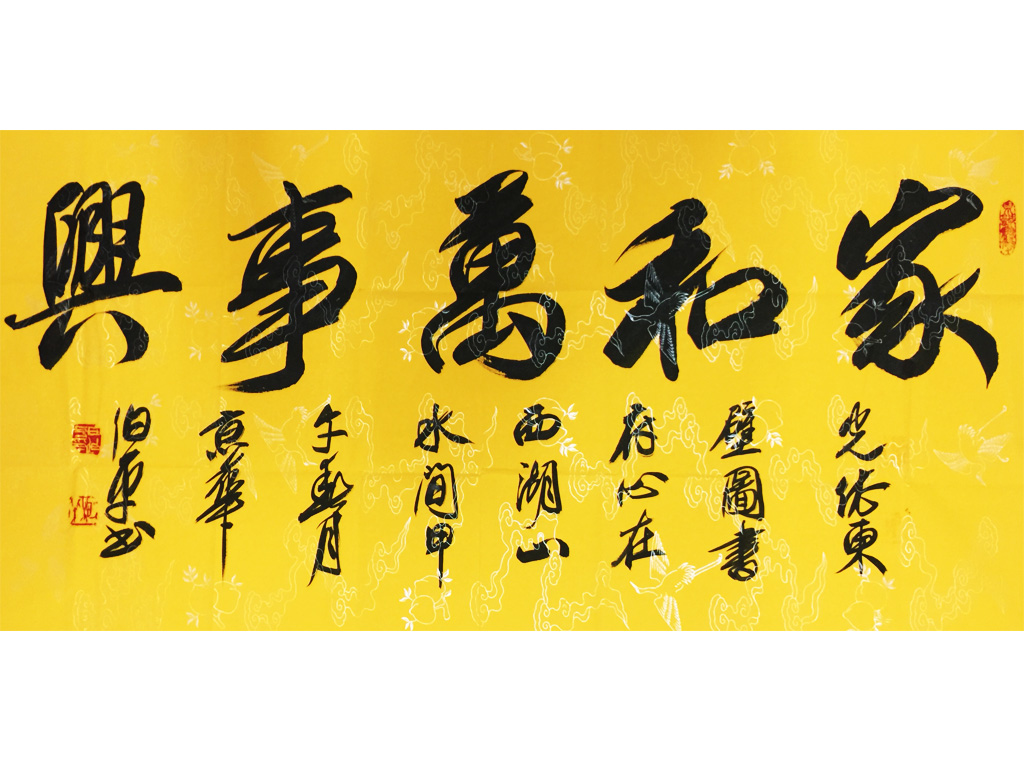 家和萬事興
光依東
壁圖書
府心在
西湖山
水間甲
午春月
京華
书